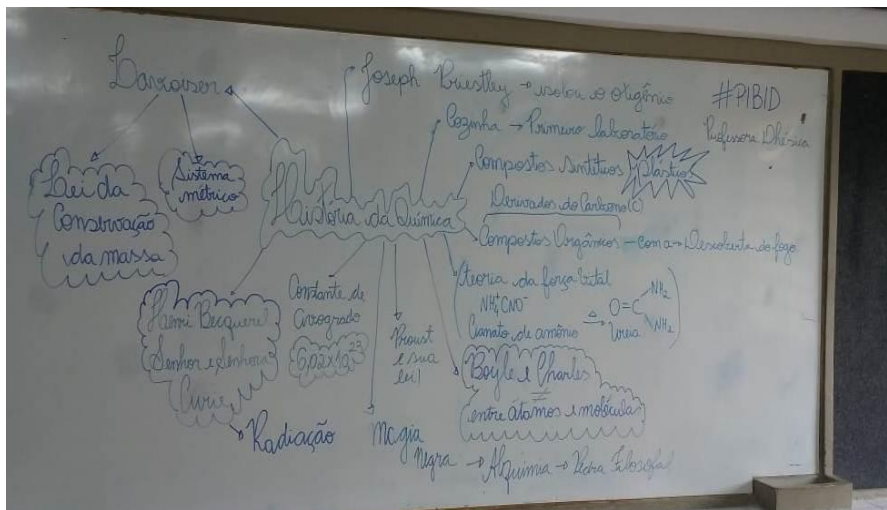 Lavoisier
Lei da
Conservação
da massa
Sistema
métrico
História da Química
Joseph Priestley → isolou o oxigênio
Cozinha → Primeiro laboratório
Compostos Sintéticos Plásticos
Derivados do Carbono (C)
Compostos Orgânicos – com a → Descoberta do fogo
(teoria da força vital
NH₄⁺CNO⁻
Cianato de amônio → Δ Ureia
O=C
NH₂
NH₂
#PIBID
Professora Dhésica
Henri Becquerel
Senhor e Senhora
Curie
Radiação
Constante de
Avogrado
6,02x10²³
Proust
e sua
lei)
Boyle e Charles
≠
entre átamos e molécula
Magia
Negra → Alquimia → Pedra Filosofal